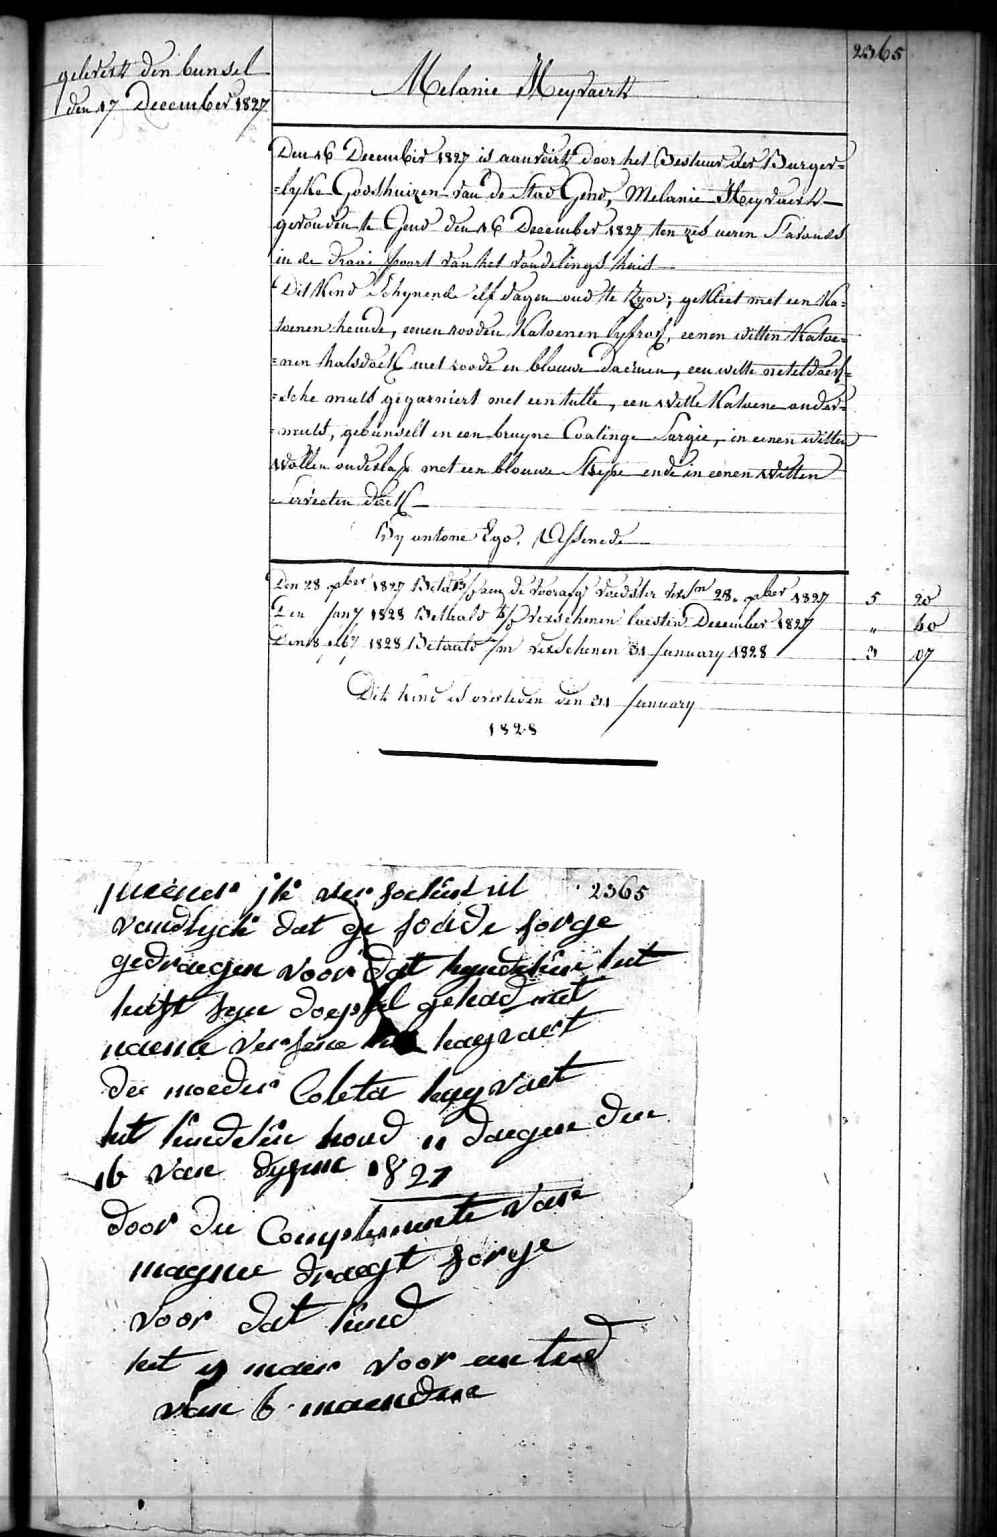 2365
gelevert den bunsel
den 17 December 1827
Melanie Heyvaert
Den 16 December 1827 is aanveird door het Bestuur der Burger=
=lyke Godshuizen van de Stad Gend, Melanie Heyvaert
gevonden te Gend den 16 December 1827 ten zes ueren s'avonds
in de draai poort van het vondelings huis
Dit kind schynende elf dagen oud te zyn; gekleet met een Ka=
toenen hemde, eenen rooden Katoenen lyfrok, eenen witten Katoe=
=nen halsdoek met roode en blouwe daemen, een witte neteldoeks=
=sche muts gegarniert met een tulle, een witte Katoene onder=
=muts, gebunselt in een bruyne Coatinge Sargie, in eenen witten
wollen onderlap met een blouwe strype ende in eenen witten
servieten doek
By antone Ego, Assenede
Den 28 xber 1827 Betd aen de voorafg voedster 28 xber 1827 5 20
Den Jany 1828 Betaald verschenen laesten December 1827 " 60
Den 8 feby 1828 Betaald verschenen 31 January 1828 3 07
Dit kind is overleden den 31 January
1828
2365
meener ik ver soeke ul
vrindlyck dat ge soude sorge
gedraegen voor dat kyndeken het
heeft syn doepsel gehad met
naeme heyvaert
de moeder Coleta heyvaet
het kindeken houd 11 daegen den
16 van dysem 1827
door die Complemente van
magnie draegt sorge
voor dat kind
het y maer voor een tied
van 6 maenden